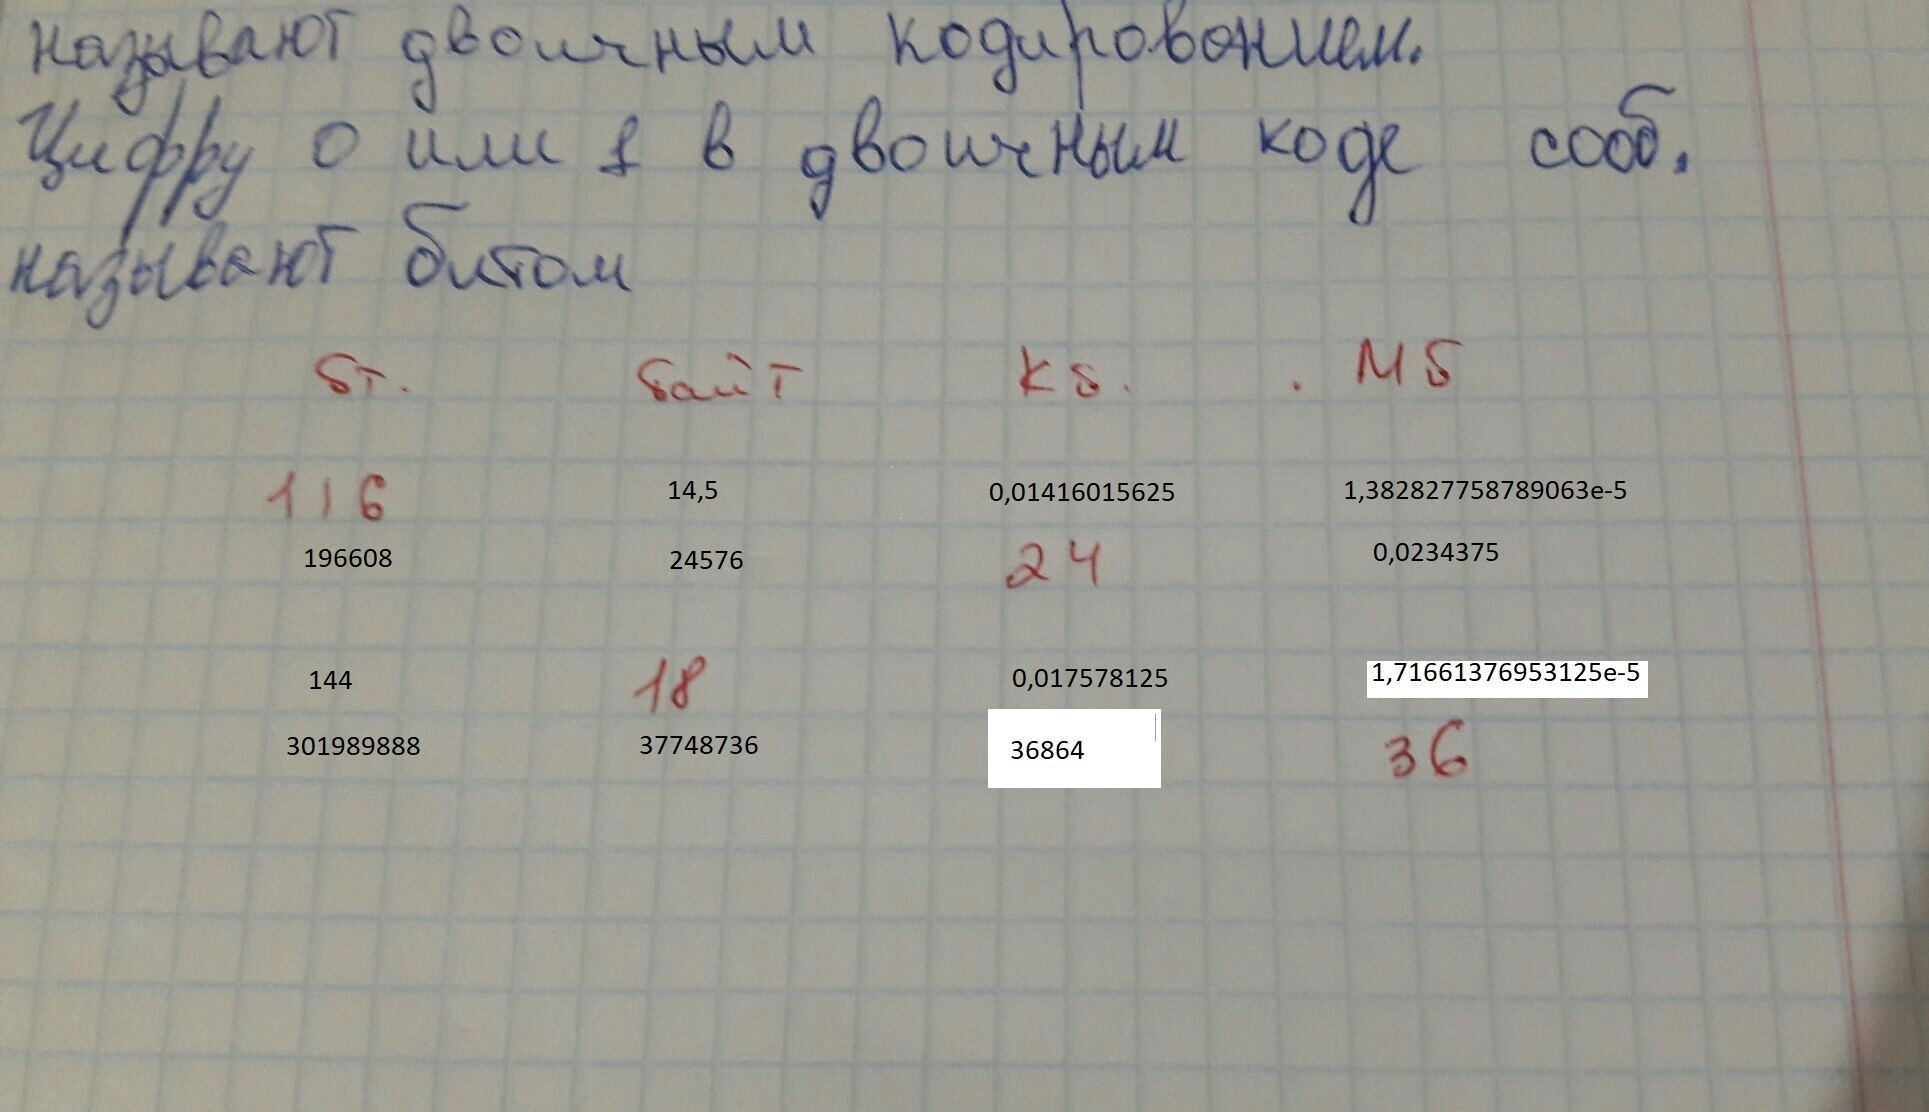 называют двоичным кодированием.
Цифру 0 или 1 в двоичным коде сооб.
называют битом
бт. байт Кб. . Мб
116 14,5 0,01416015625 1,382827758789063e-5
196608 24576 24 0,0234375
144 18 0,017578125 1,71661376953125e-5
301989888 37748736 36864 36